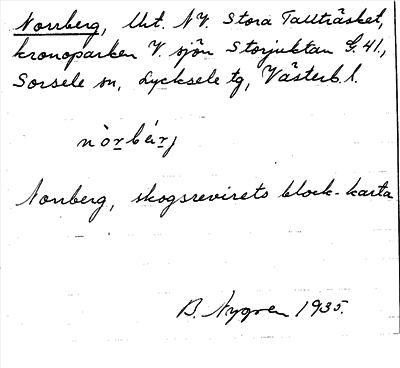 Norrberg, Utt. NV. Stora Tallträsket,
kronoparken V. sjön Storjuktan G. 41.,
Sorsele sn, Lycksele tg, Västerb. l.
nòrbérj
Norrberg, skogsrevirets block-karta
B. Nygren 1935.